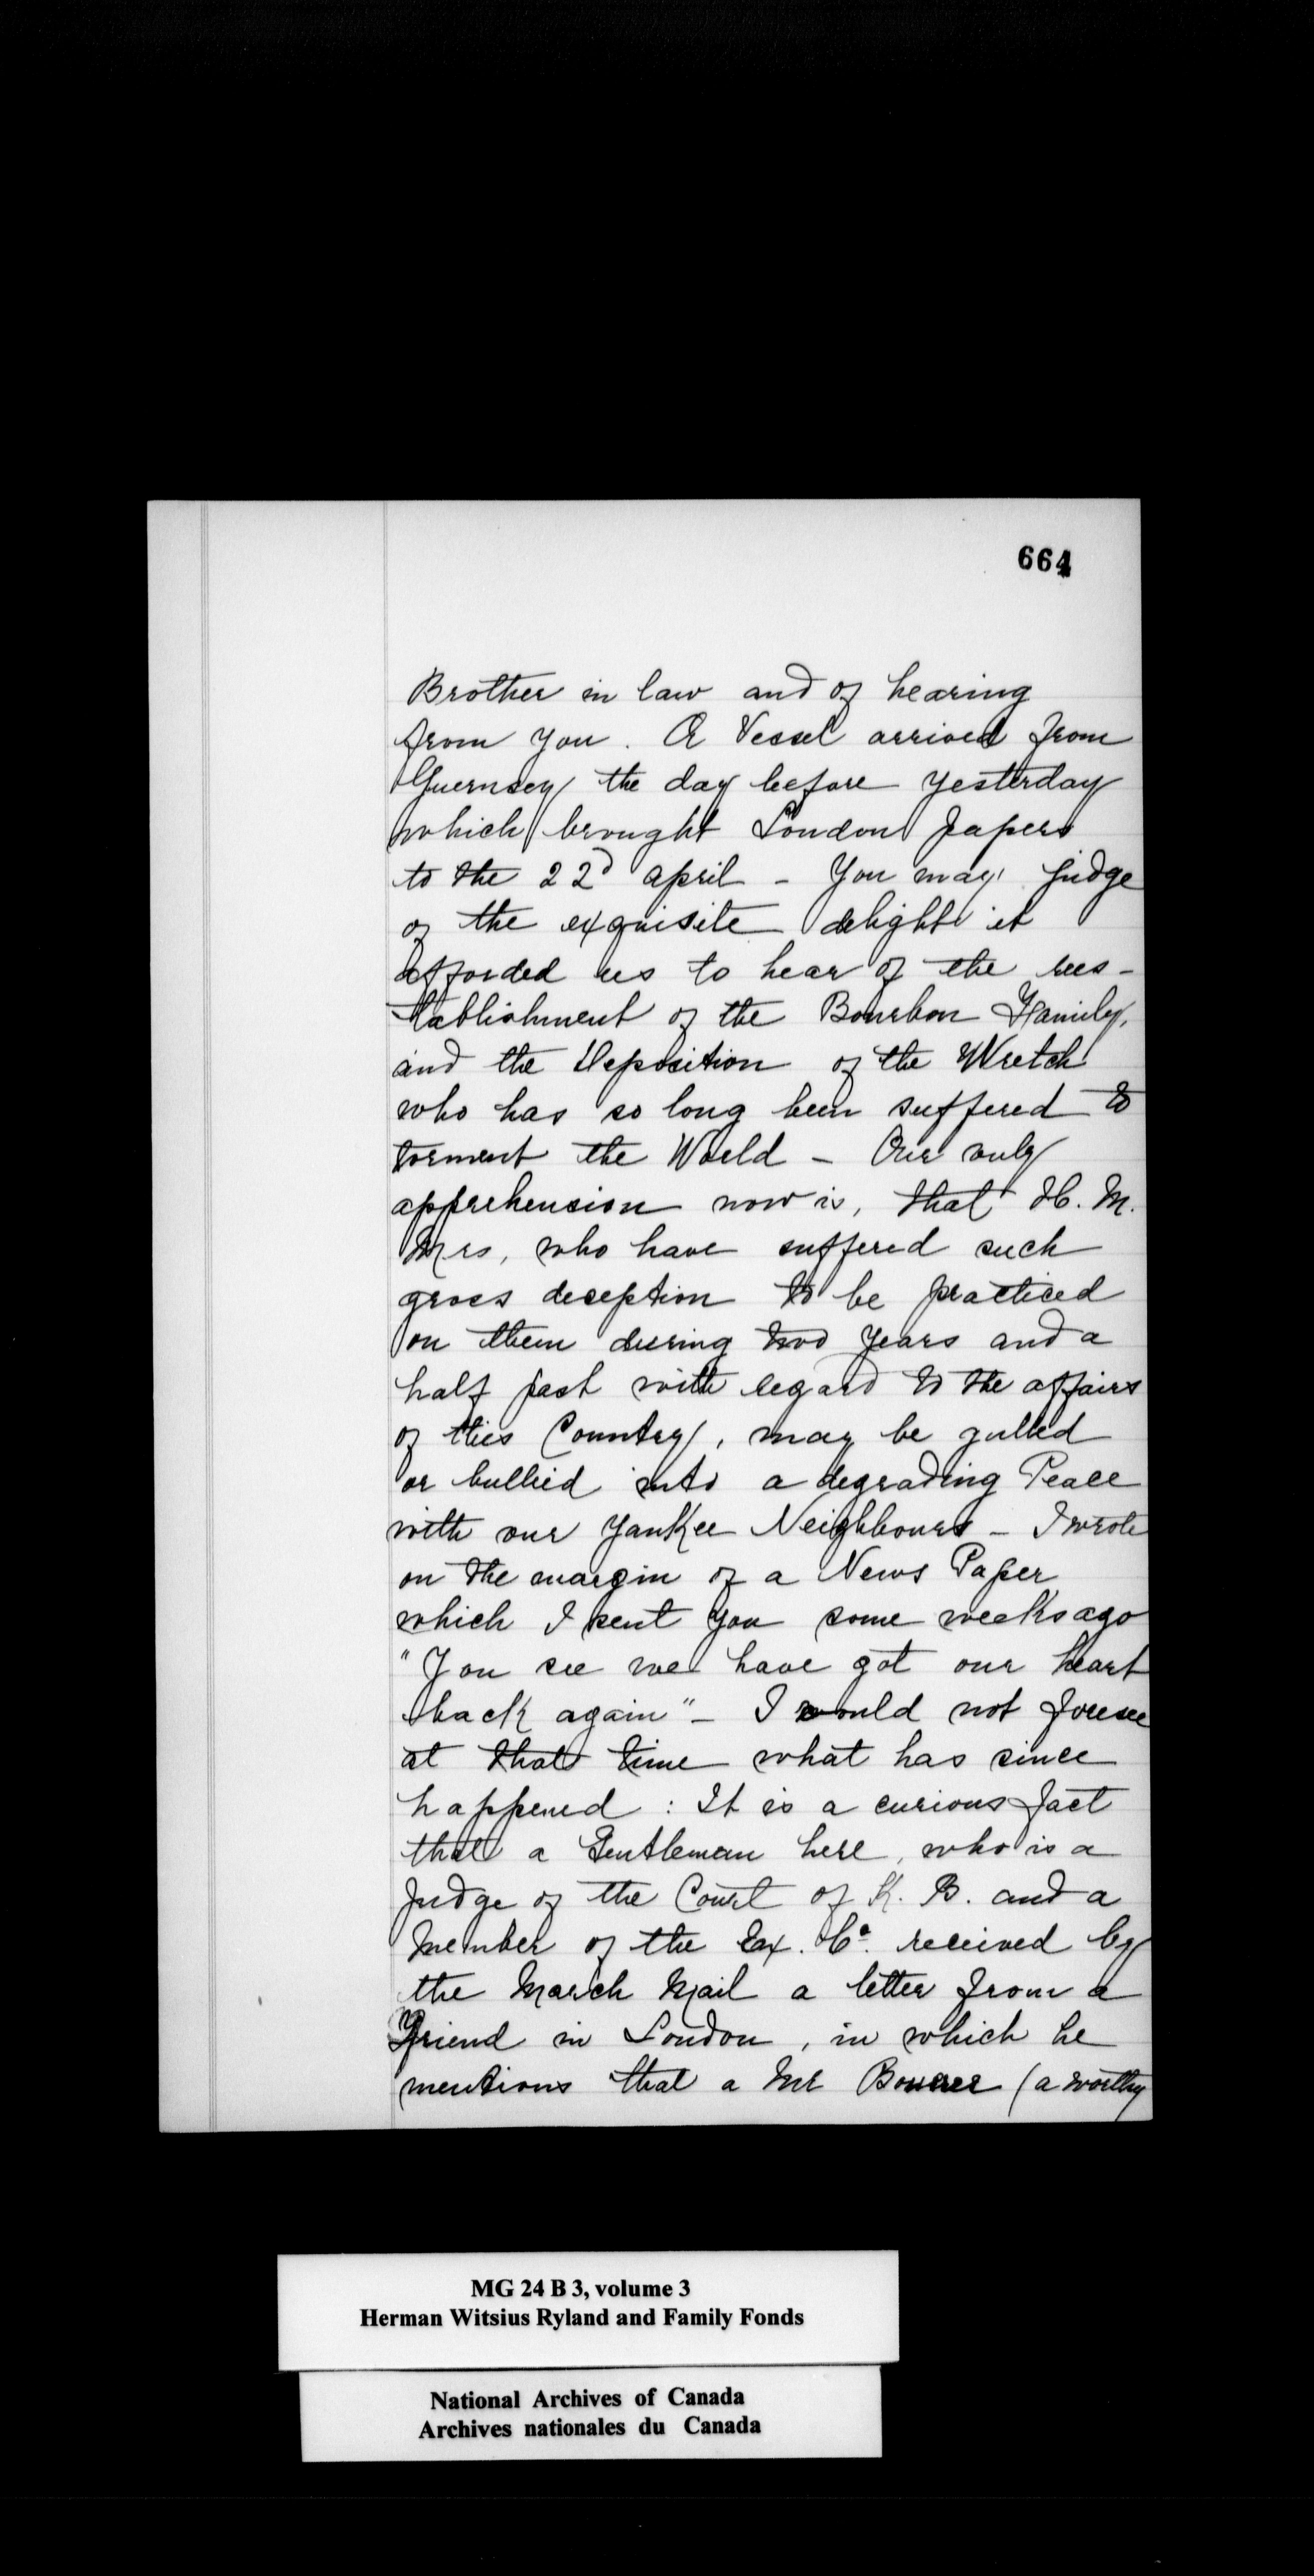 664
Brother in law and of hearing
from you. A Vessel arrived from
Guernsey the day before yesterday
which brought London papers
to the 22d april - You may judge
of the exquisite delight it
afforded us to hear of the rees-
tablishment of the Bourbon Family,
and the Deposition of the Wretch
who has so long been suffered to
torment the World - Our only
apprehension now is, that H. M.
Mrs, who have suffered such
gross deception to be practiced
on them during two years and a
half past with regard to the affairs
of this Country, may be gulled
or bullied into a degrading Peace
with our Yankee Neighbours - I wrote
on the margin of a News Paper
which I sent you some weeks ago
"You see we have got our heart
back again" - I could not foresee
at that time what has since
happened : It is a curious fact
that a Gentleman here, who is a
Judge of the Court of K. B. and a
Member of the Ex. Co. received by
the March Mail a letter from a
Friend in London, in which he
mentions that a Mr (a worthy
MG 24 B 3, volume 3
Herman Witsius Ryland and Family Fonds
National Archives of Canada
Archives nationales du Canada